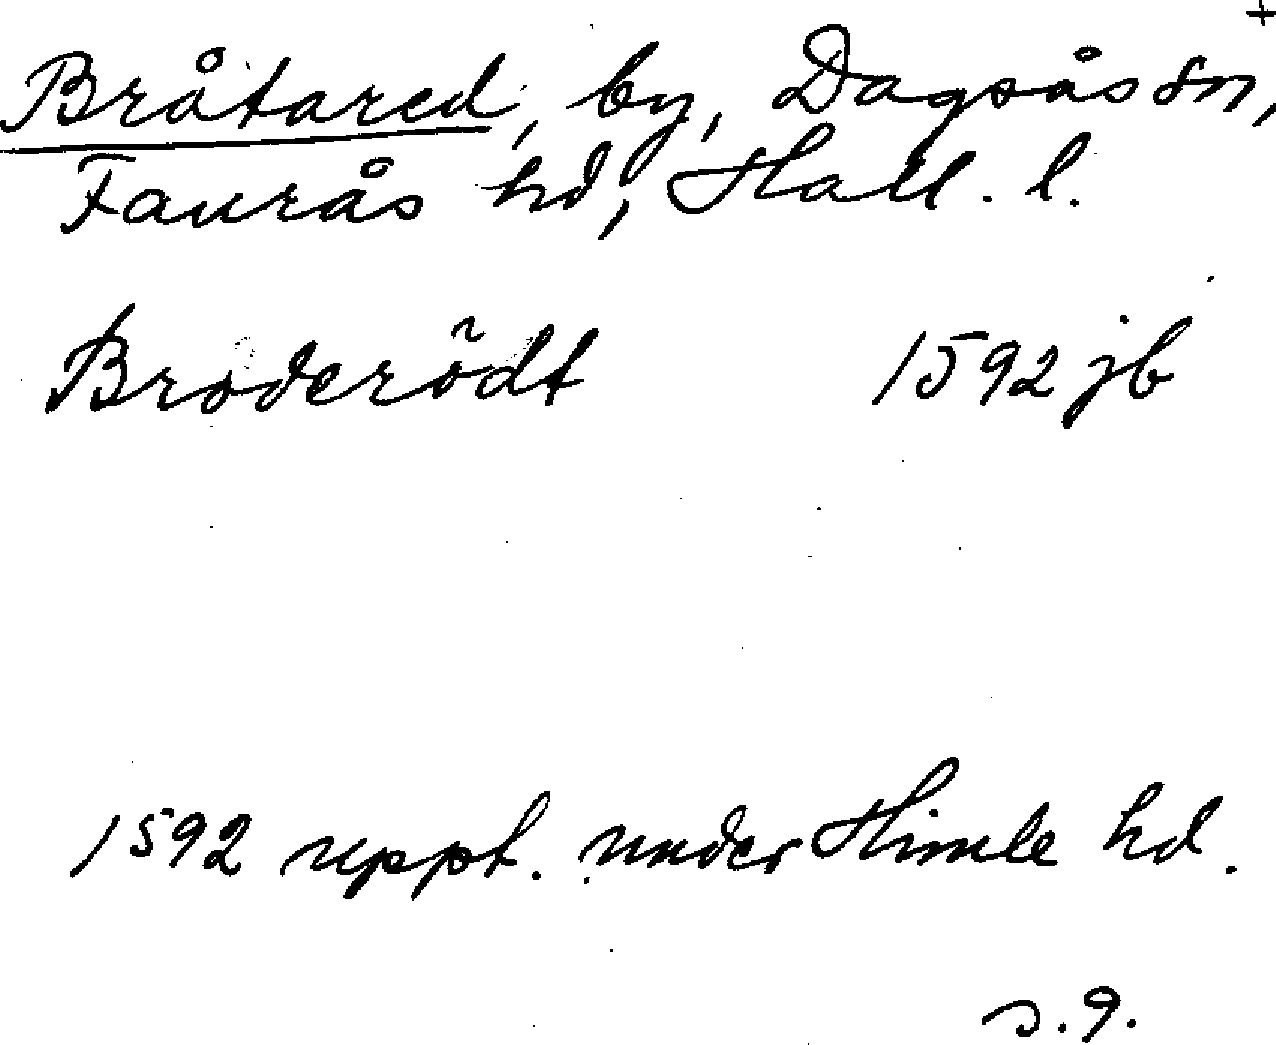 +
Bråtared, by, Dagsås sn,
Faurås hd, Hall. l.
Broderödt 1592 jb
1592 uppt. under Himle hd.
s. 9.